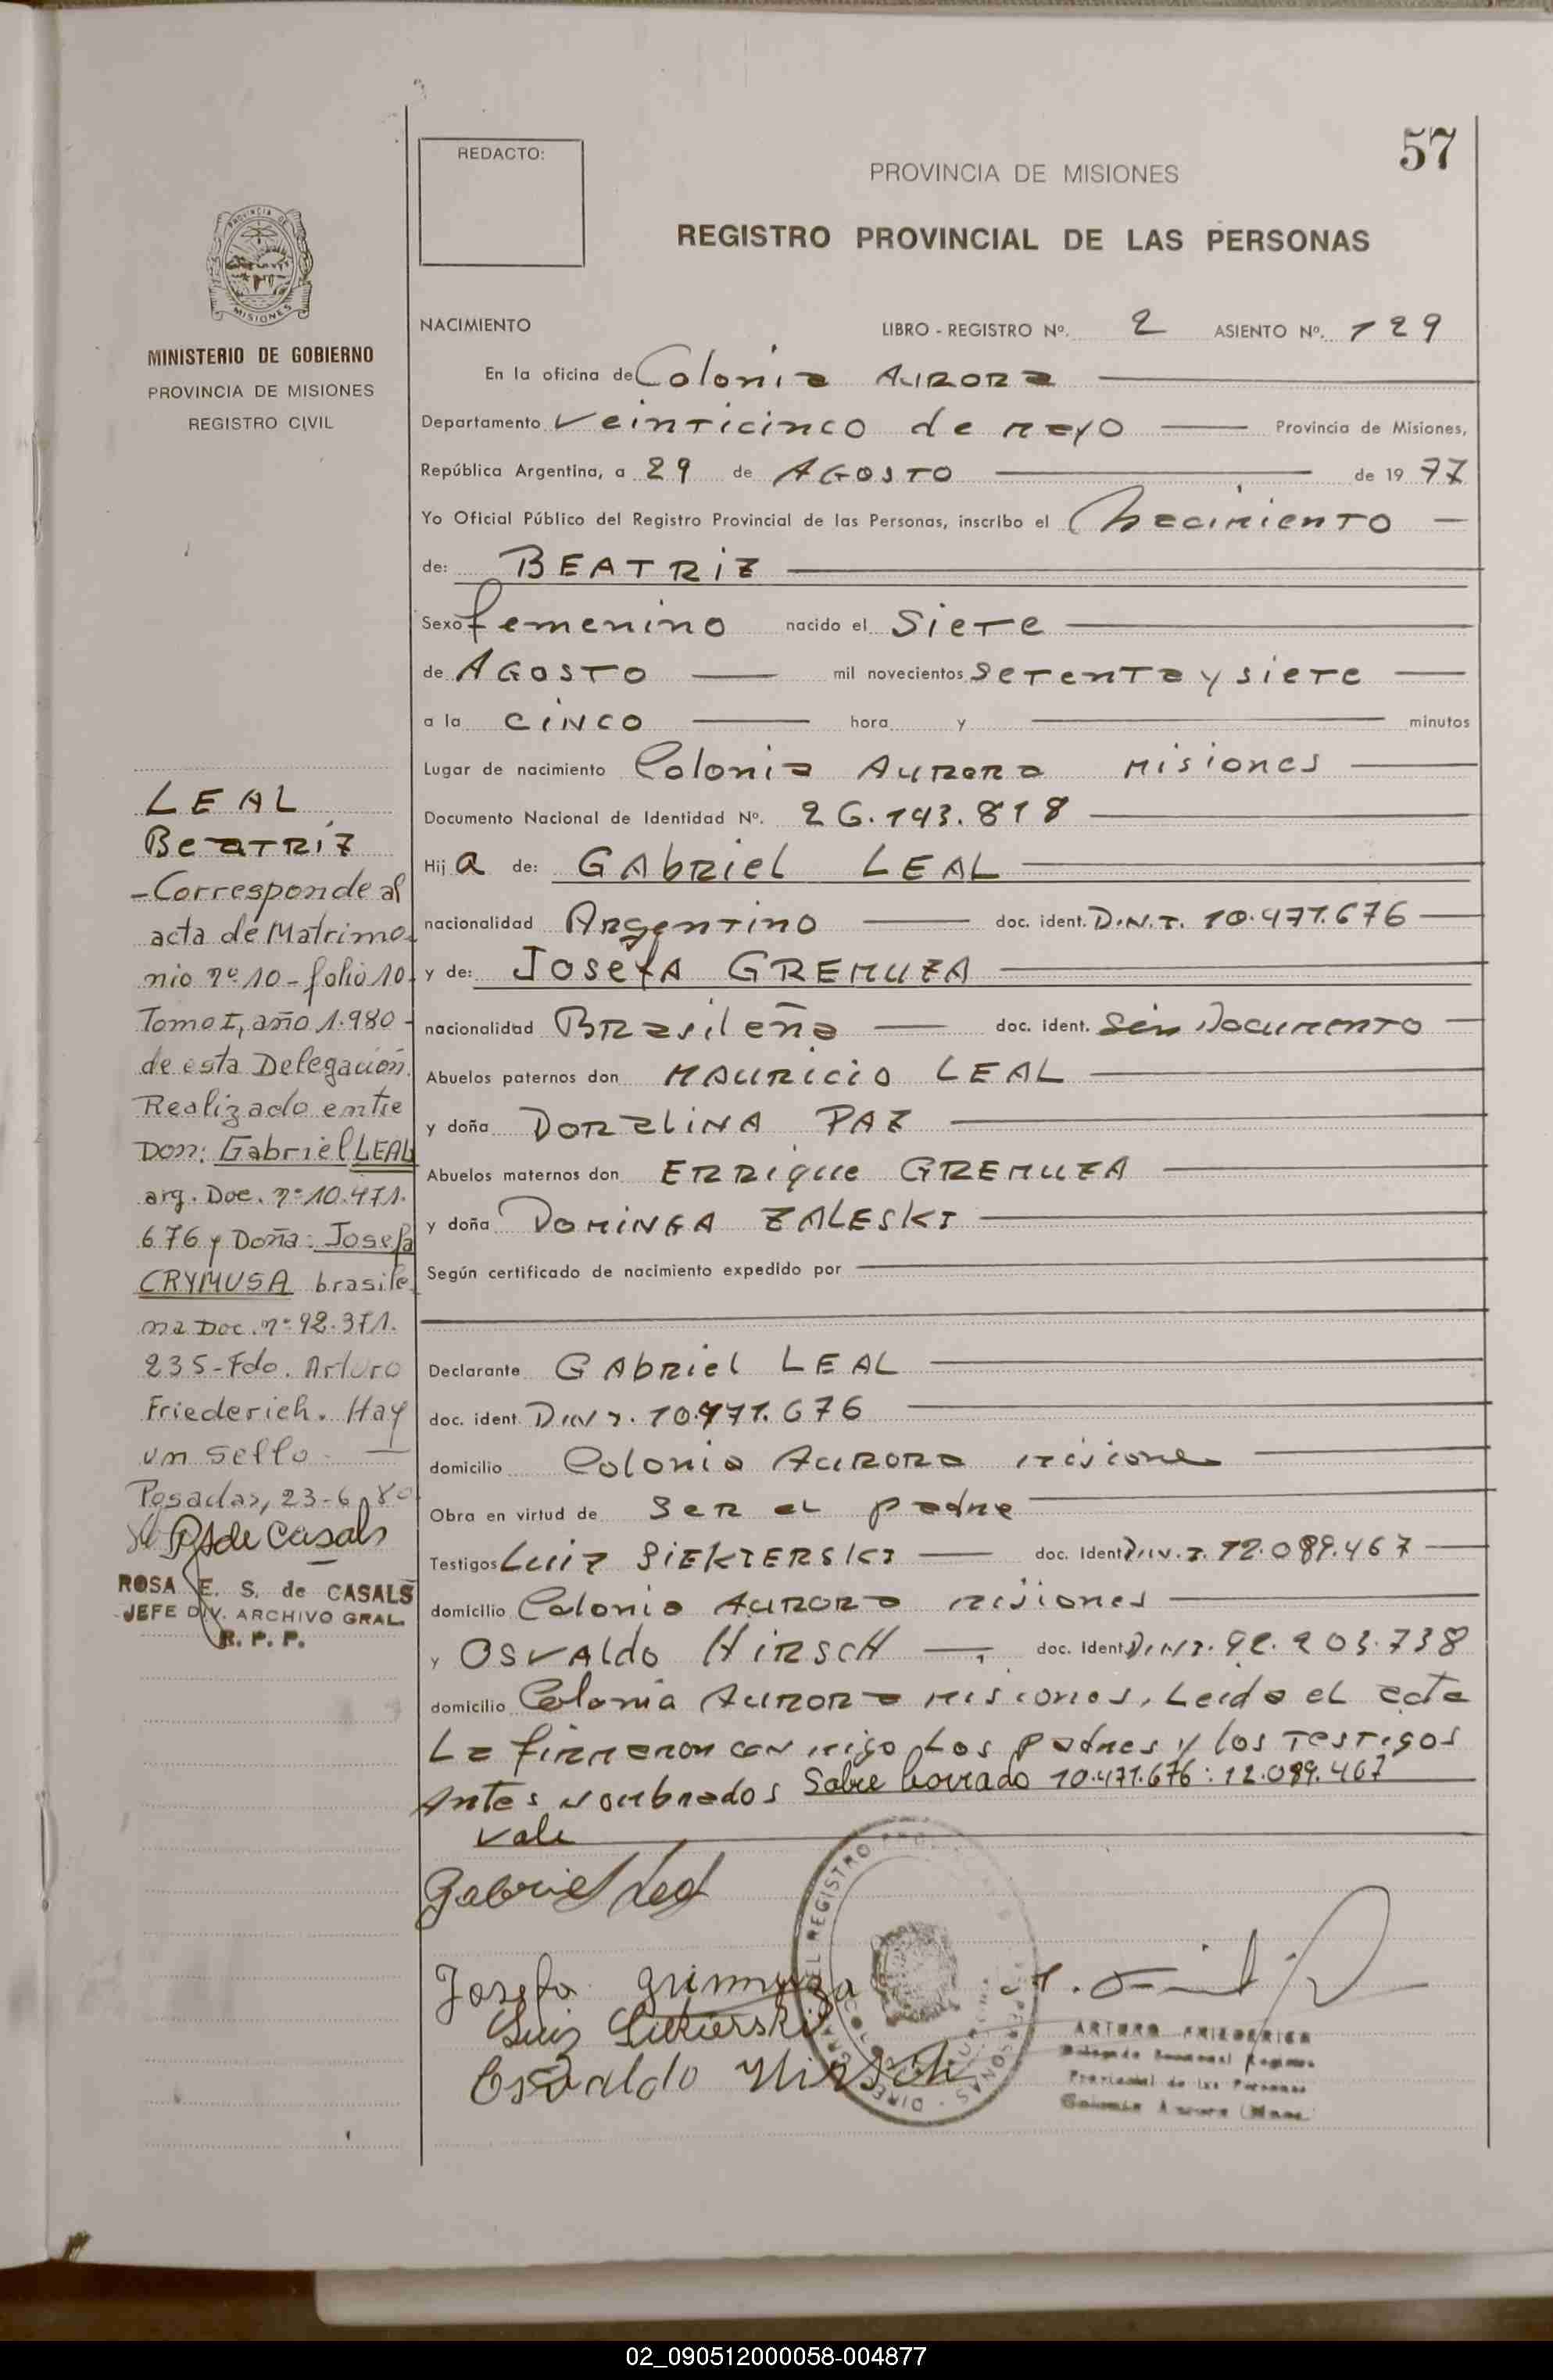 57
REDACTO:
PROVINCIA DE MISIONES
REGISTRO PROVINCIAL DE LAS PERSONAS
PROVINCIA DE
MISIONES
MINISTERIO DE GOBIERNO
PROVINCIA DE MISIONES
REGISTRO CIVIL
NACIMIENTO LIBRO - REGISTRO Nº. 2 ASIENTO Nº. 129
En la oficina de Colonia AURORA
Departamento Veinticinco de mayo Provincia de Misiones,
República Argentina, a 29 de AGOSTO de 19 77
Yo Oficial Público del Registro Provincial de las Personas, inscribo el Nacimiento
de: BEATRIZ
Sexo femenino nacido el Siete
de AGOSTO mil novecientos Setenta y siete
a la CINCO hora y minutos
Lugar de nacimiento Colonia AURORA Misiones
Documento Nacional de Identidad Nº. 26.193.818
Hij a de: GAbRiel LEAL
nacionalidad Argentino doc. ident. D.N.I. 10.471.676
y de: JosefA GREMUZA
nacionalidad BRasileña doc. ident. Sin Documento
Abuelos paternos don MAURICIO LEAL
y doña DORALINA PAZ
Abuelos maternos don ERRique GREMUZA
y doña DOMINGA ZALESKI
Según certificado de nacimiento expedido por
Declarante GAbRiel LEAL
doc. ident. DNI. 10.471.676
domicilio Colonia AURORA misiones
Obra en virtud de SER EL padre
Testigos LUIZ SIEKIERSKI doc. Ident D.N.I. 12.089.467
domicilio Colonia AURORA misiones
y OSVALdo HIRSCH doc. Ident D.N.I. 92.203.738
domicilio Colonia AURORA misiones, Leida el acta
La firmaron con migo Los padres y los Testigos
Antes nombrados Sobre borrado 10.471.676: 12.089.467
Vale
Gabriel Leal
Josefa grimmuza
Luiz Siekierski
Osvaldo Hirsch
ARTURO FRIEDERICH
Provincial de las Personas
Colonia Aurora
LEAL
BeatRiz
-Corresponde al
acta de Matrimo-
nio nº 10 - folio 10-
Tomo I, año 1.980 -
de esta Delegación.
Realizado entre
Don: Gabriel LEAL
arg. Doc. nº 10.471.
676 y Doña: Josefa
CRYMUSA brasile-
na Doc. nº 92.371.
235-Fdo. Arturo
Friederich. Hay
un sello.
Posadas, 23-6-80
RSde Casals
ROSA E. S. de CASALS
JEFE DIV. ARCHIVO GRAL.
R. P. P.
02_090512000058-004877